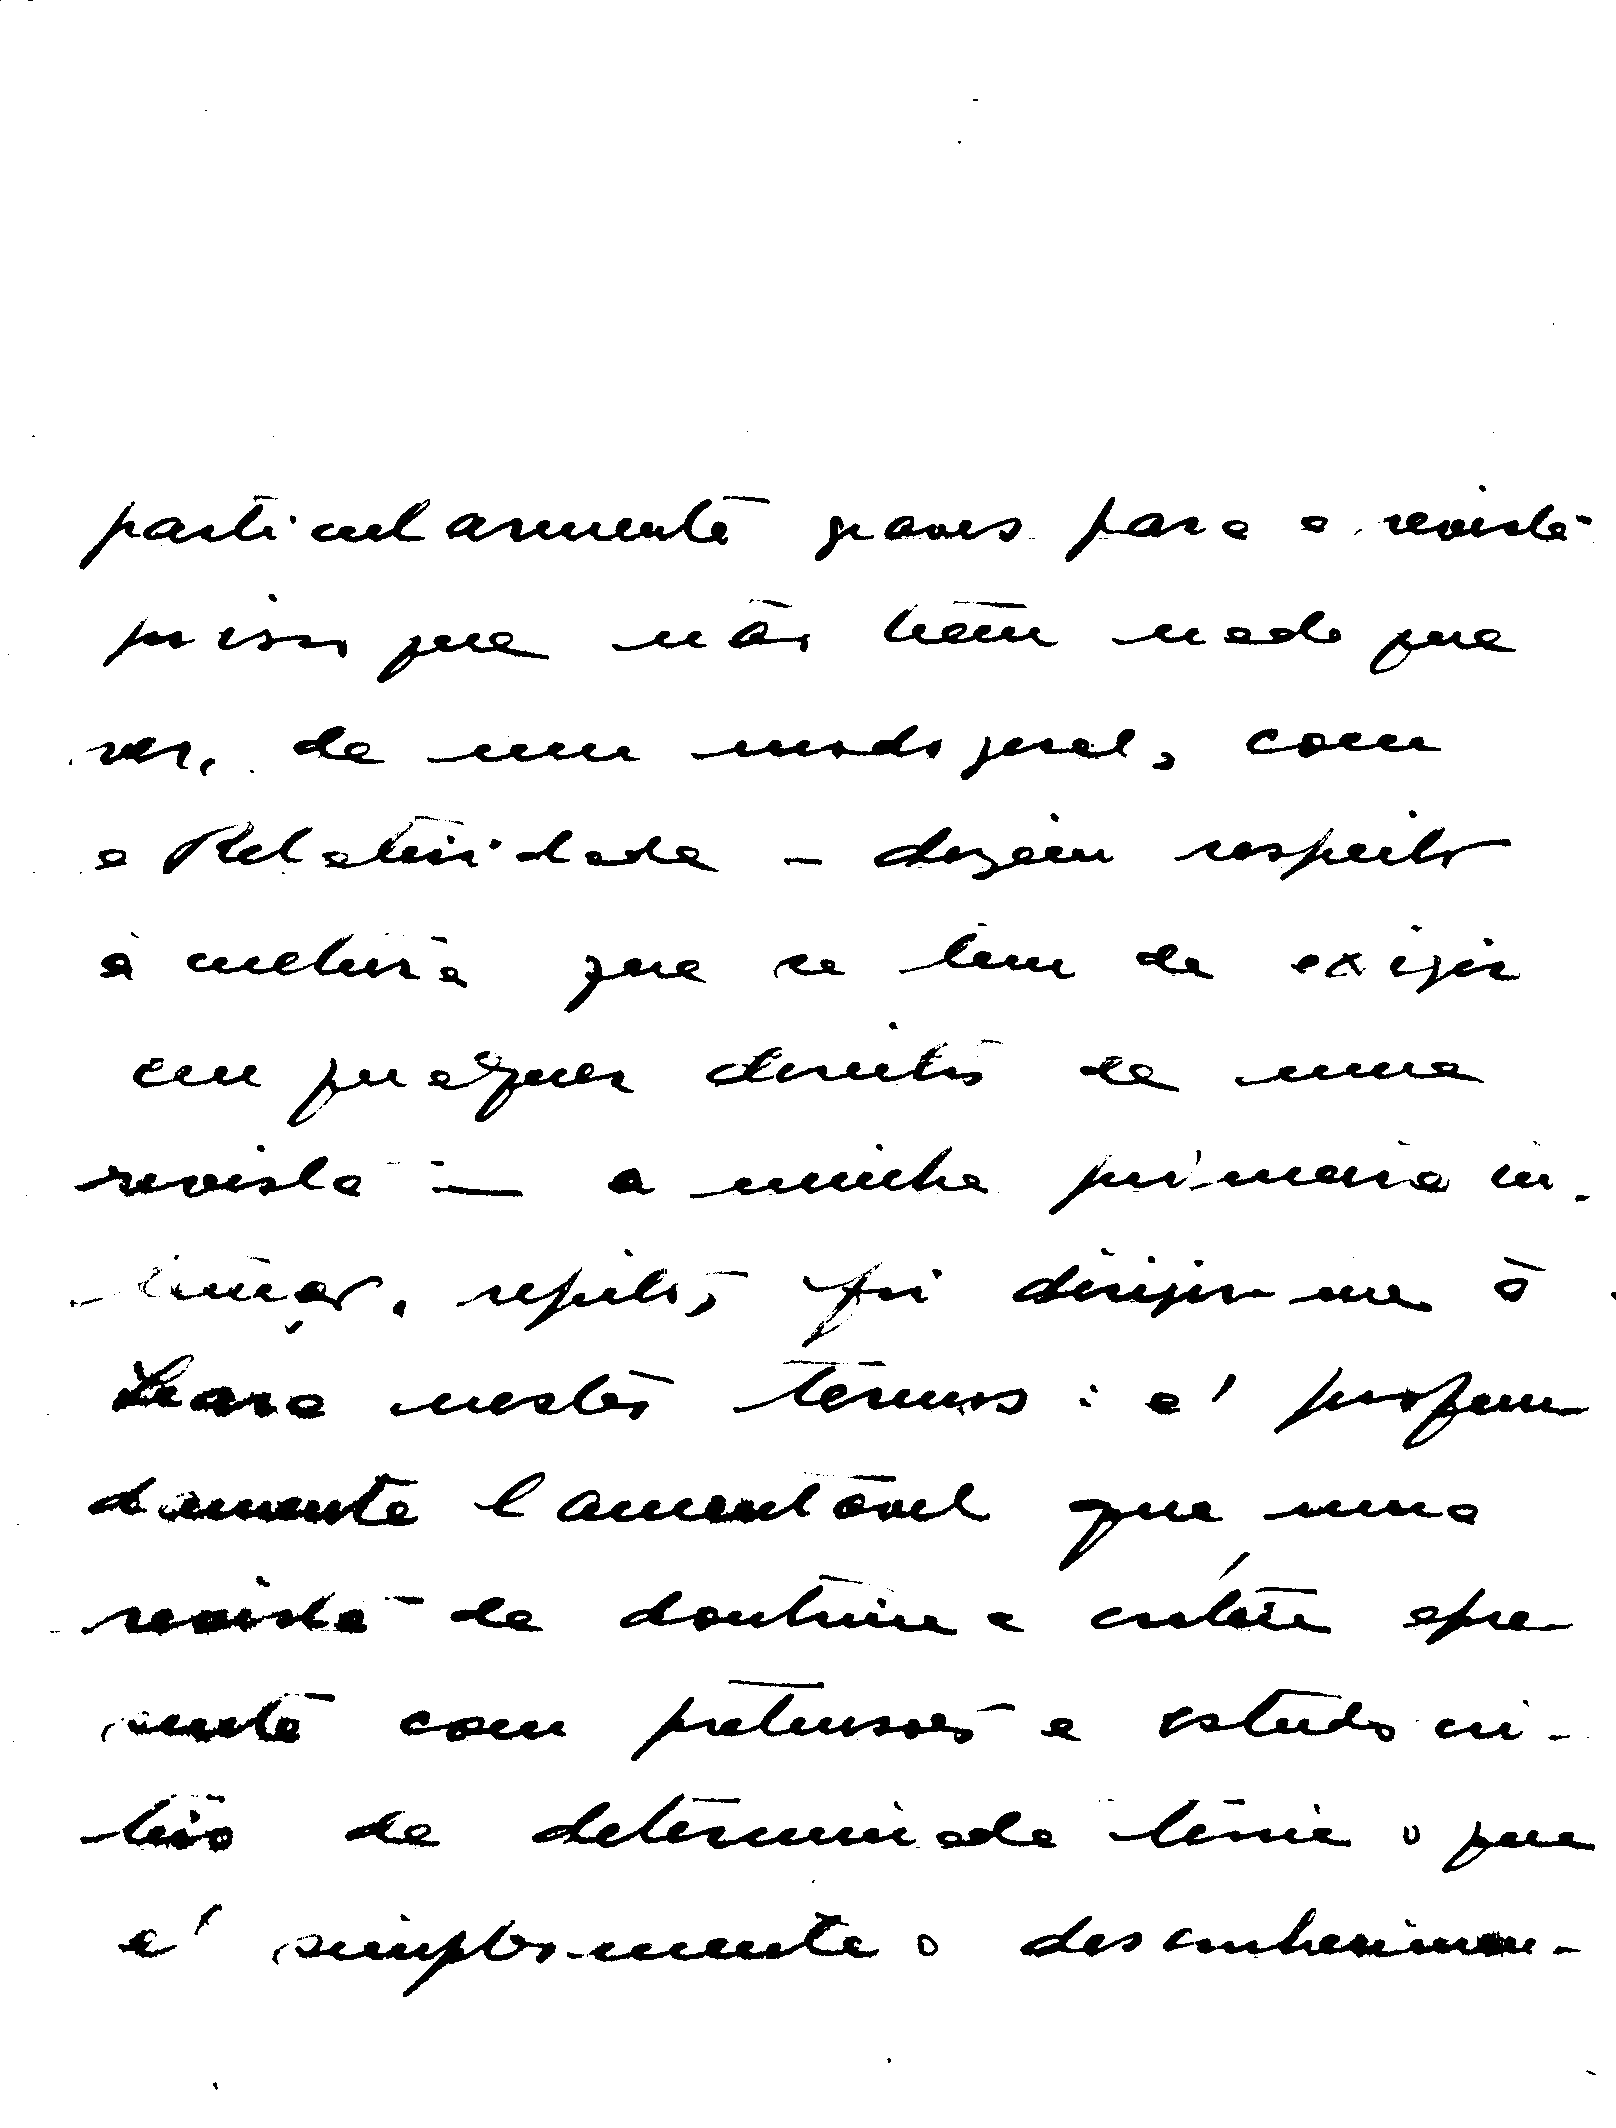 particularmente graves para a revista
por isso que não têm nada que
ver, de um modo geral, com
a Relatividade – dizem respeito
à cultura que se tem de exigir
em qualquer director de uma
revista — a minha primeira in-
tenção, repito, foi dirigir-me à
Seara nestes termos: é profun
damente lamentável que uma
revista de doutrina e crítica apre
sente com pretensões a estudo crí-
tico de determinada teoria o que
é simplesmente o desconhecimen-